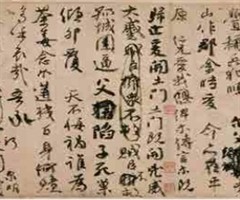 山作郡余時受命亦在平
原仁兄愛我俾爾傳言爾既
歸止爰開土門土門既開凶威
大蹙賊臣不救
孤城圍逼父陷子死巢
傾卵覆天不悔禍誰為
荼毒念爾遘殘百身何贖
嗚乎哀哉吾承